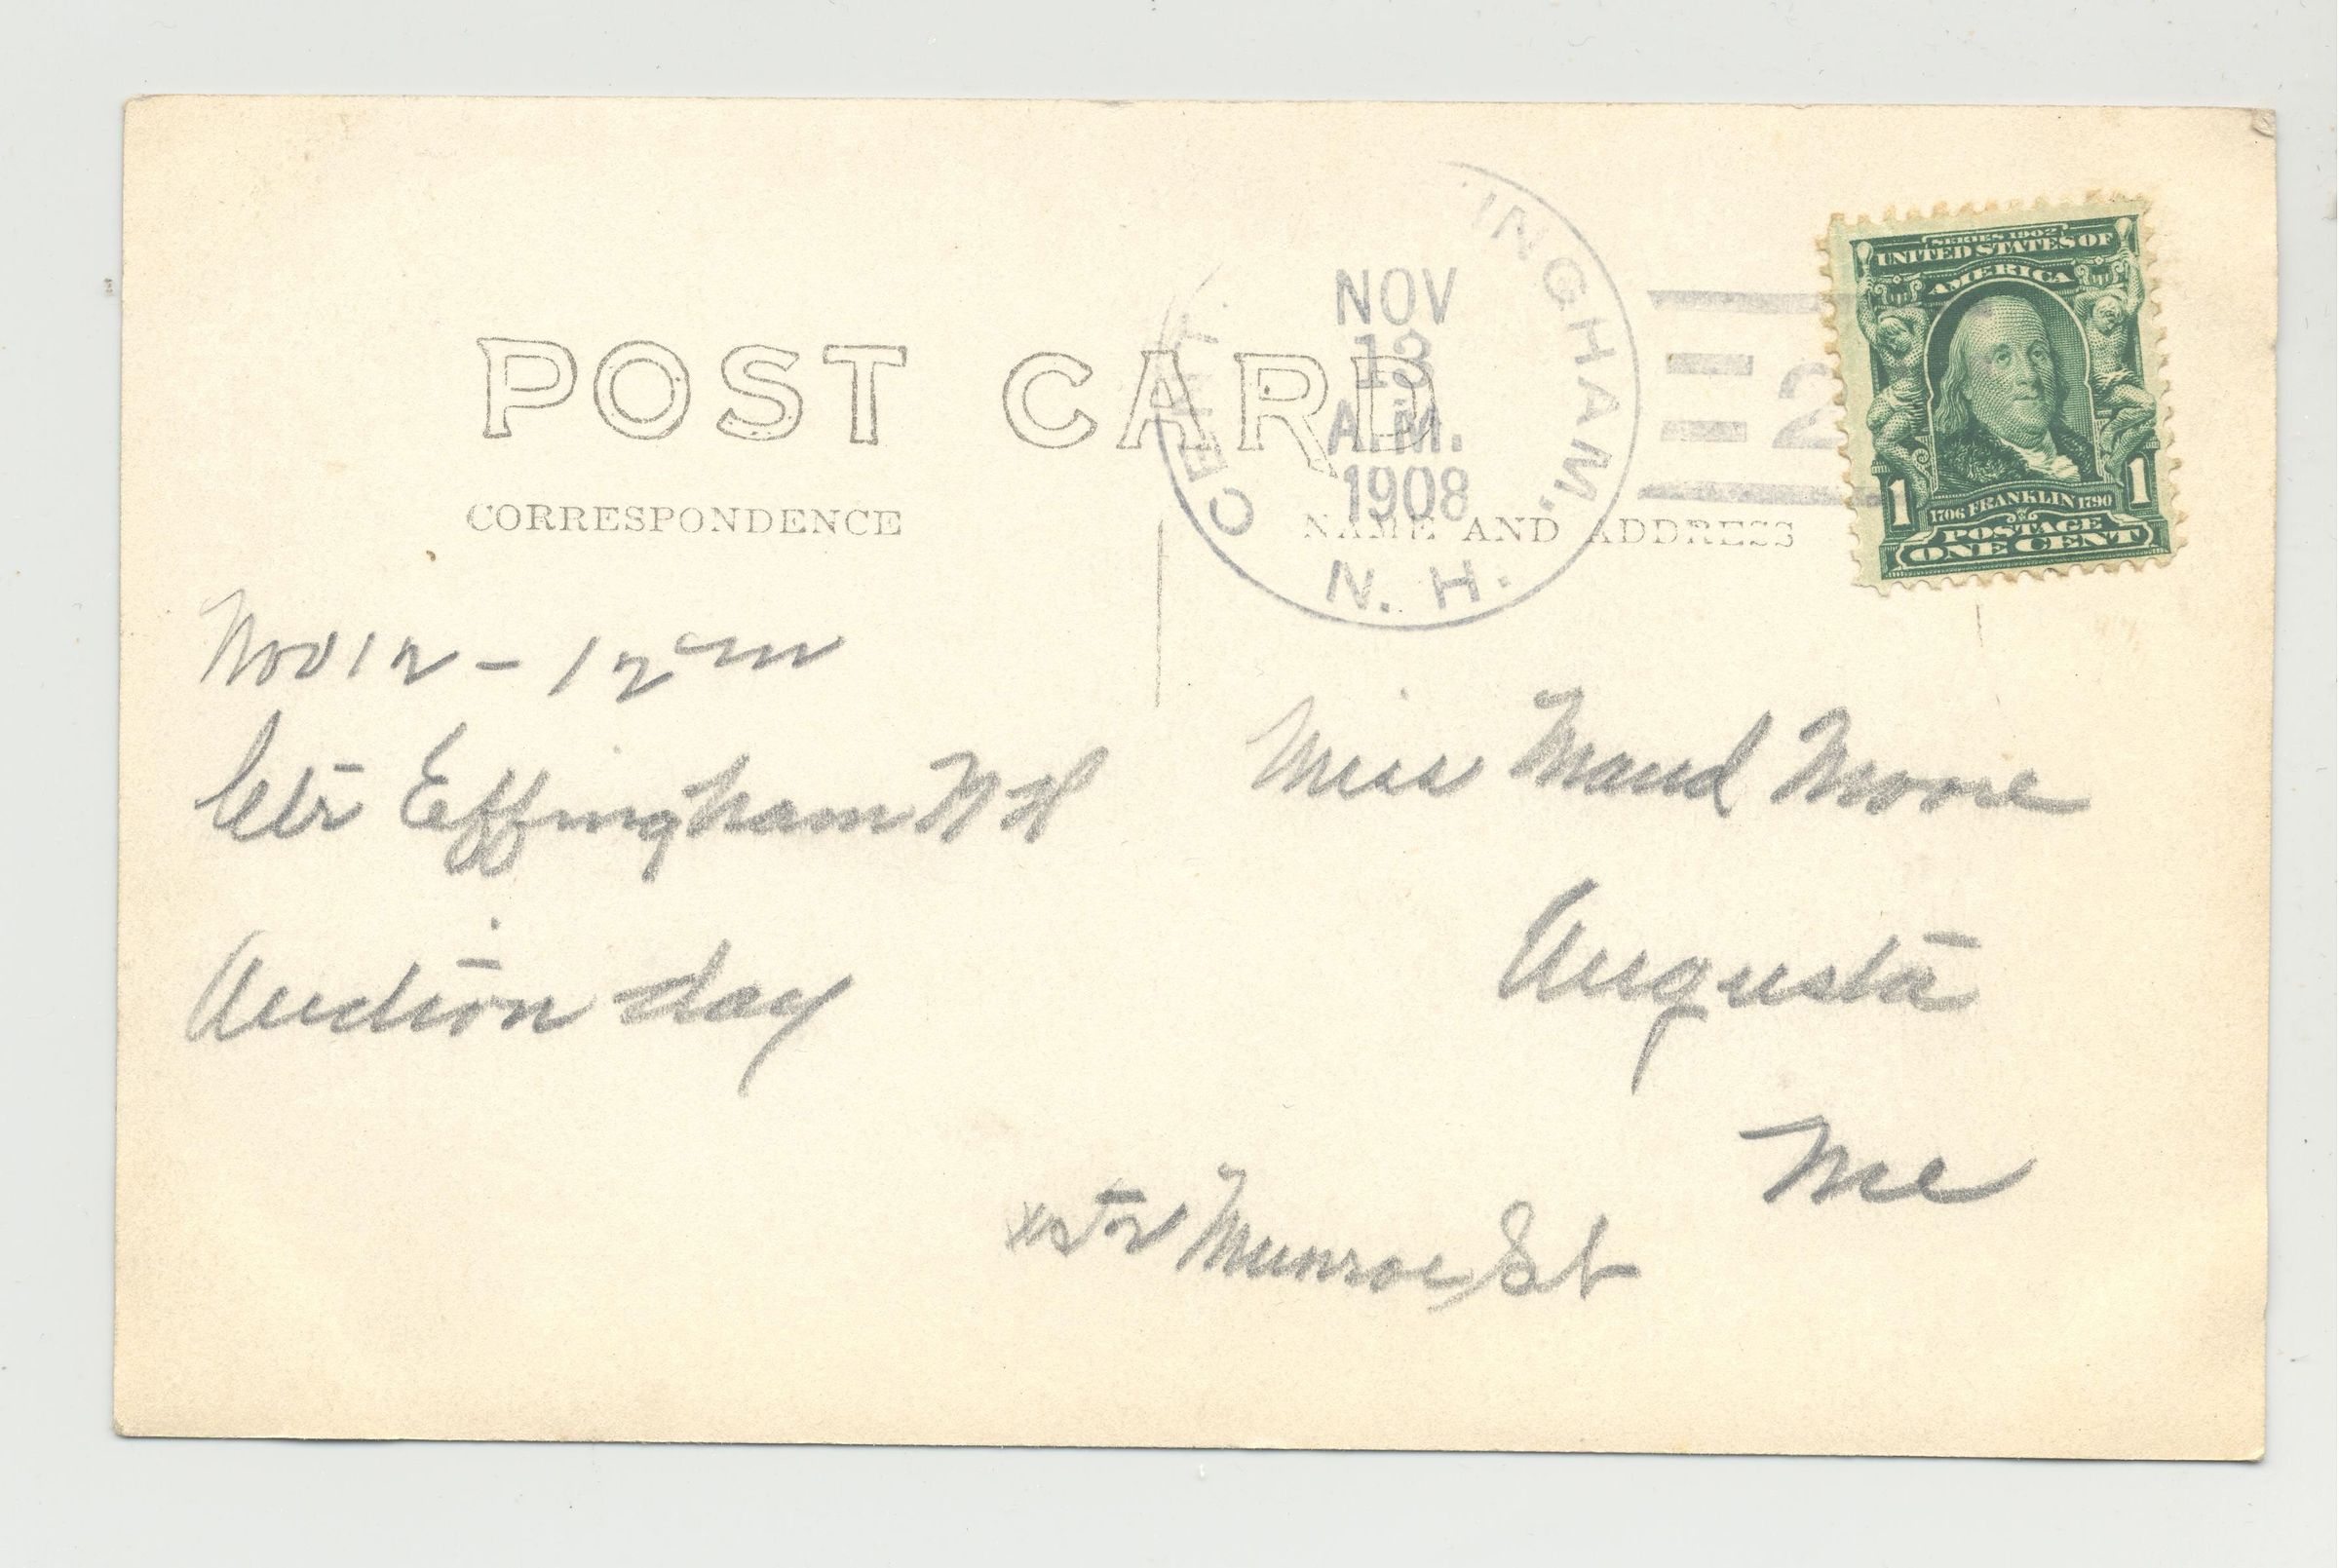 POST CARD
CORRESPONDENCE
NAME AND ADDRESS
CENT. INGHAM,
N. H.
NOV
13
A.M.
1908
2
SERIES 1902
UNITED STATES OF
AMERICA
1706 FRANKLIN 1790
1 POSTAGE 1
ONE CENT
Nov 12 - 12 m
Ctr Effingham N H
Auction day
Miss Maud Moore
Augusta
Me
Munroe St